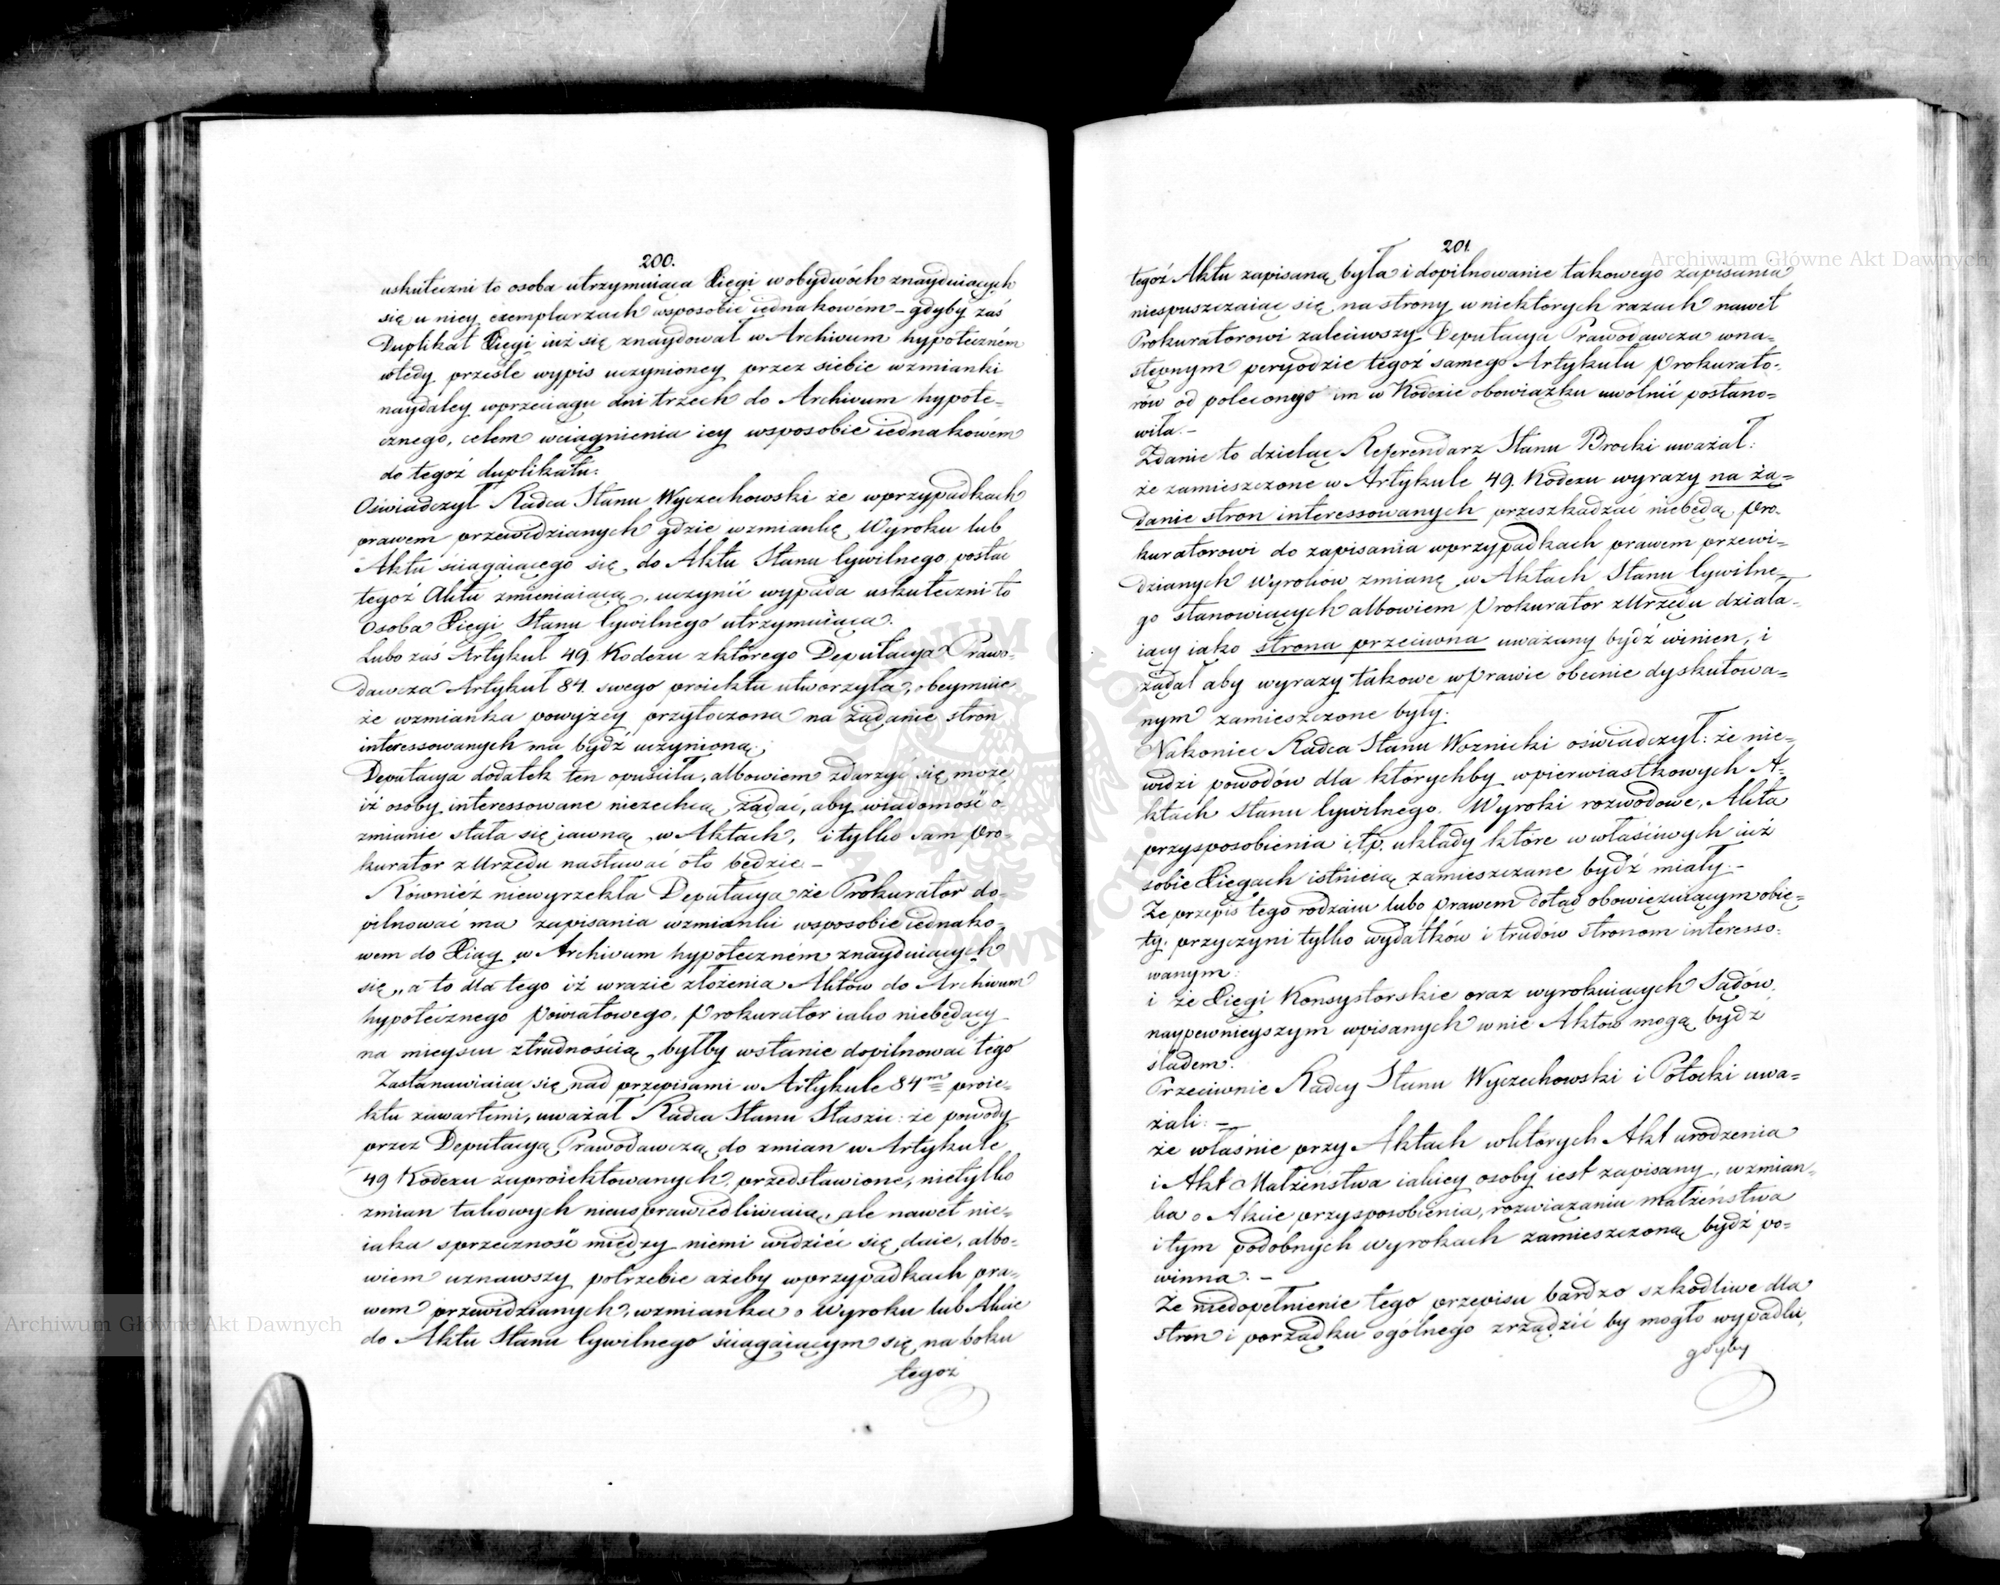 200.
uskuteczni to osoba utrzymuiąca Xięgi w obydwóch znayduiących
się u niey exemplarzach w sposobie iednakowém – gdyby zaś
Duplikat Xięgi iuż się znaydował w Archivum hypoteczném
wtedy prześle wypis uczynioney przez siebie wzmianki
naydaley w przeciągu dni trzech do Archivum hypote-
cznego, celem wciągnienia iey w sposobie iednakowém
do tegoż duplikatu.
Oświadczył Radca Stanu Wyczechowski że w przypadkach
prawem przewidzianych gdzie wzmiankę Wyroku lub
Aktu ściągaiącego się do Aktu Stanu Cywilnego postać
tegoż Aktu zmieniaiącą, uczynić wypada uskuteczni to
Osoba Xięgi Stanu Cywilnego utrzymuiąca.
Lubo zaś Artykuł 49 Kodexu z którego Deputacya Prawo-
dawcza Artykuł 84. swego proiektu utworzyła, obeymuie
że wzmianka powyżey przytoczona na żądanie stron
interessowanych ma bydź uczynioną;
Deputacya dodatek ten opuściła, albowiem zdarzyć się może
iż osoby interessowane niezechcą żądać, aby wiadomość o
zmianie stała się iawną w Aktach, i tylko sam Pro-
kurator z Urzędu nastawać oto będzie –
Również niewyrzekła Deputacya że Prokurator do-
pilnować ma zapisania wzmianki w sposobie iednako-
wem do Xiąg w Archivum hypoteczném znayduiących
się, a to dla tego iż w razie złożenia Aktów do Archivum
hypotecznego Powiatowego, Prokurator iako niebędący
na mieyscu z trudnością byłby w stanie dopilnować tego
Zastanawiaiąc się nad przepisami w Artykule 84m proie-
ktu zawartemi, uważał Radca Stanu Staszic: że powody
przez Deputacyą Prawodawczą do zmian w Artykule
49 Kodexu zaproiektowanych, przedstawione, nietylko
zmian takowych nieusprawiedliwiaią, ale nawet nie-
iaka sprzeczność między niemi widzieć się daie, albo-
wiem uznawszy potrzebę ażeby w przypadkach pra-
wem przewidzianych, wzmianka o Wyroku lub Akcie
do Aktu Stanu Cywilnego ściągaiącym się na boku
tegoż
201.
tegoż Aktu zapisaną była i dopilnowanie takowego zapisania
niespuszczaiąc się na strony w niektórych razach nawet
Prokuratorowi zaleciwszy Deputacya Prawodawcza w na-
stępnym peryodzie tegoż samego Artykułu Prokurato-
rów od poleconego im w Kodexie obowiązku uwolnić postano-
wiła. –
Zdanie to dzieląc Referendarz Stanu Brocki uważał:
że zamieszczone w Artykule 49. Kodexu wyrazy na żą-
danie stron interessowanych przeszkadzać niebędą Pro-
kuratorowi do zapisania w przypadkach prawem przewi-
dzianych Wyroków zmianę w Aktach Stanu Cywilne-
go stanowiących albowiem Prokurator z Urzędu działa-
iący iako strona przeciwna uważany bydź winien, i
żądał aby wyrazy takowe w Prawie obecnie dyskutowa-
nym zamieszczone były.
Nakoniec Radca Stanu Woznicki oświadczył: że nie-
widzi powodów dla którychby w pierwiastkowych A-
ktach Stanu Cywilnego Wyroki rozwodowe, Akta
przysposobienia i t.p. układy które w właściwych iuż
sobie Xięgach istnieią zamieszczane bydź miały. –
Że przepis tego rodzaiu lubo Prawem dotąd obowięzuiącym obię-
ty, przyczyni tylko wydatków i trudów stronom interesso-
wanym:
i że Xięgi Konsystorskie oraz wyrokuiących Sądów,
naypewnieyszym wpisanych w nie Aktów mogą bydź
śladem.
Przeciwnie Radcy Stanu Wyczechowski i Potocki uwa-
żali: –
że właśnie przy Aktach w których Akt urodzenia
i Akt Małżeństwa iakiey osoby iest zapisany, wzmian-
ka o Akcie przysposobienia, rozwiązania małżeństwa
i tym podobnych wyrokach zamieszczoną bydź po-
winna. –
Że niedopełnienie tego przepisu bardzo szkodliwe dla
stron i porządku ogólnego zrządzić by mogło wypadki,
gdyby
Archiwum Główne Akt Dawnych
Archiwum Główne Akt Dawnych